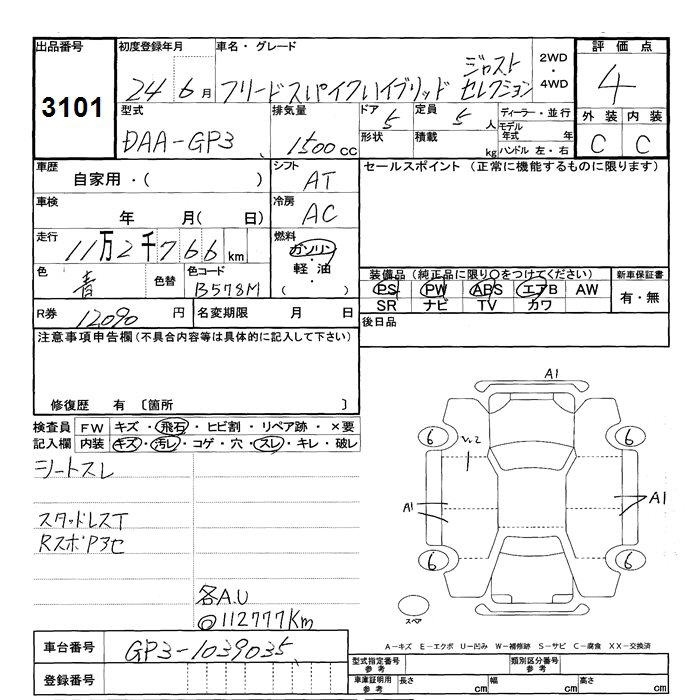 出品番号
3101
初度登録年月
24 6 月
車名・グレード
フリードスパイクハイブリッド ジャストセレクション
2WD
・
4WD
評価点
4
外装 内装
C C
型式
DAA-GP3
排気量
1500 CC
ドア 5
形状
定員 5 人
積載 kg
ディーラー・並行
モデル年式 年
ハンドル 左・右
車歴
自家用・( )
シフト
AT
車検
年 月( 日)
冷房
AC
走行
11万2千766 km
燃料
ガソリン
・
軽油
・
( )
色
青
色替
色コード
B578M
R券 12090 円
名変期限 月 日
セールスポイント (正常に機能するものに限ります)
装備品(純正品に限り○をつけてください)
PS PW ABS エアB AW
SR ナビ TV カワ
新車保証書
有・無
後日品
注意事項申告欄(不具合内容等は具体的に記入して下さい)
修復歴 有 〔箇所 〕
検査員 FW キズ・飛石・ヒビ割・リペア跡・×要
記入欄 内装 キズ・汚レ・コゲ・穴・スレ・キレ・破レ
シートスレ
スタッドレスT
RスポP3セ
各A.U
◎112777Km
A1
6 6
A1 A1
6 6
スペア
A-キズ E-エクボ U-凹み W-補修跡 S-サビ C-腐食 XX-交換済
車台番号
GP3-1039035
登録番号
型式指定番号
参考
類別区分番号
参考
車庫証明用
参考
長さ cm 幅 cm 高さ cm